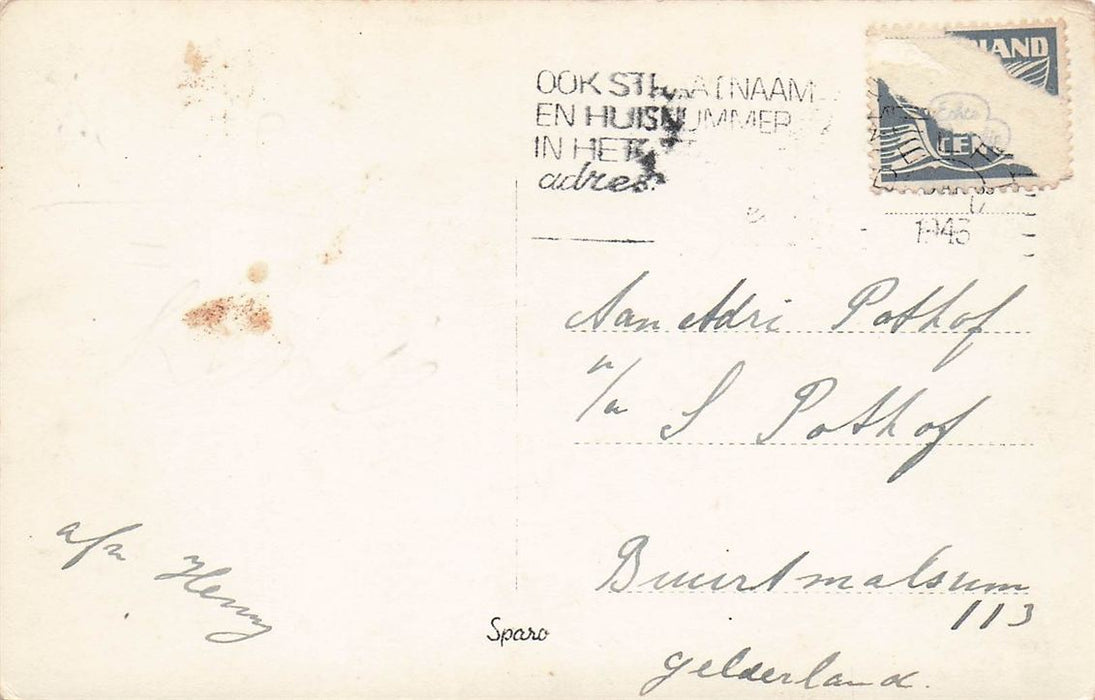 OOK STRAATNAAM
EN HUISNUMMER
IN HET
adres
LAND
Echte
CEN
1945
Aan Adri Pothof
p/a S Pothof
Buurtmalsum
113
Gelderland.
afz Henny
Sparo